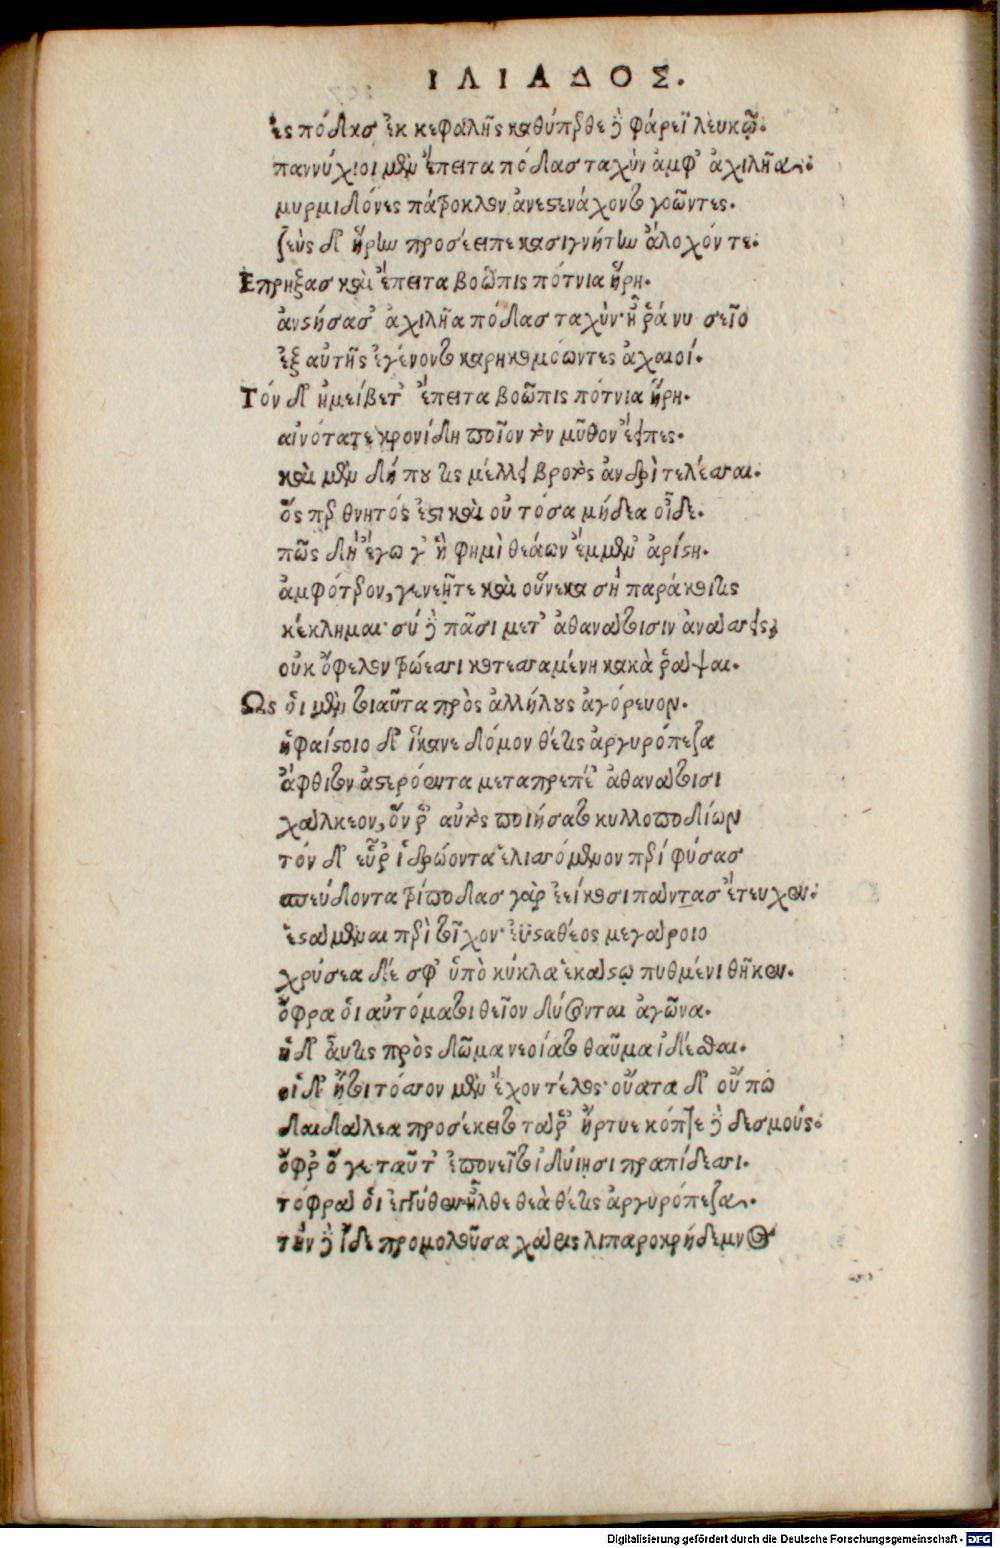 ΙΛΙΑΔΟΣ.
ἐς πόδασ ἐκ κεφαλῆς καθύπερθε δὲ φάρεϊ λευκῷ.
παννύχιοι μὲν ἔπειτα πόδας ταχὺν ἀμφ' ἀχιλῆα
μυρμιδόνες πάτροκλον ἀνεστενάχοντο γοῶντες.
ζεὺς δ' ἥρην προσέειπε κασιγνήτην ἄλοχόν τε.
Επρηξας καὶ ἔπειτα βοῶπις πότνια ἥρη.
ἀνστήσασ' ἀχιλῆα πόδας ταχὺν· ἦ ῥά νυ σεῖο
ἐξ αὐτῆς ἐγένοντο καρηκομόωντες ἀχαιοί.
Τόν δ' ἠμείβετ' ἔπειτα βοῶπις πότνια ἥρη.
αἰνότατε κρονίδη ποῖον τὸν μῦθον ἔειπες.
καὶ μὲν δή που τις μέλλει βροτὸς ἀνδρὶ τελέσσαι.
ὅς περ θνητός ἐστι καὶ οὐ τόσα μήδεα οἶδε.
πῶς δὴ ἔγωγ' ἥ φημὶ θεάων ἔμμεν' ἀρίστη.
ἀμφότερον, γενεῇτε καὶ οὕνεκα σὴ παράκοιτις
κέκλημαι· σύ δὲ πᾶσι μετ' ἀθανάτοισιν ἀνάσσεις,
οὐκ ὄφελον τρώεσσι κοτεσσαμένη κακὰ ῥάψαι.
Ως ὁι μὲν τοιαῦτα πρὸς ἀλλήλους ἀγόρευον.
ἡφαίστοιο δ' ἵκανε δόμον θέτις ἀργυρόπεζα
ἄφθιτον ἀστερόεντα μεταπρεπέ' ἀθανάτοισι
χάλκεον, ὅν ῥ' αὐτὸς ποιήσατο κυλλοποδίων
τόν δ' εὗρ' ἱδρώοντα ἑλισσόμενον περί φύσας
σπεύδοντα τρίποδας γὰρ ἐείκοσι πάντας ἔτευχεν·
ἑστάμεναι περὶ τοῖχον· ἐϋσταθέος μεγάροιο
χρύσεα δέ σφ' ὑπὸ κύκλα ἑκάστῳ πυθμένι θῆκεν.
ὄφρα ὁι αὐτόματοι θεῖον δύσονται ἀγῶνα.
ἠδ' αὖτις πρὸς δῶμα νεοίατο θαῦμα ἰδέσθαι.
οἱ δ' ἤτοι τόσσον μὲν ἔχον τέλος· οὔατα δ' οὔ πω
δαιδάλεα προσέκειτο τάρ' ἤρτυε κόπτε δὲ δεσμούς.
ὄφρ' ὅ γε ταῦτ' ἐπονεῖτο ἰδύιησι πραπίδεσσι.
τόφρα ὁι ἐγγύθεν ἦλθε θεὰ θέτις ἀργυρόπεζα.
τὴν δὲ ἴδε προμολοῦσα χάρις λιπαροκρήδεμνος
Digitalisierung gefördert durch die Deutsche Forschungsgemeinschaft - DFG